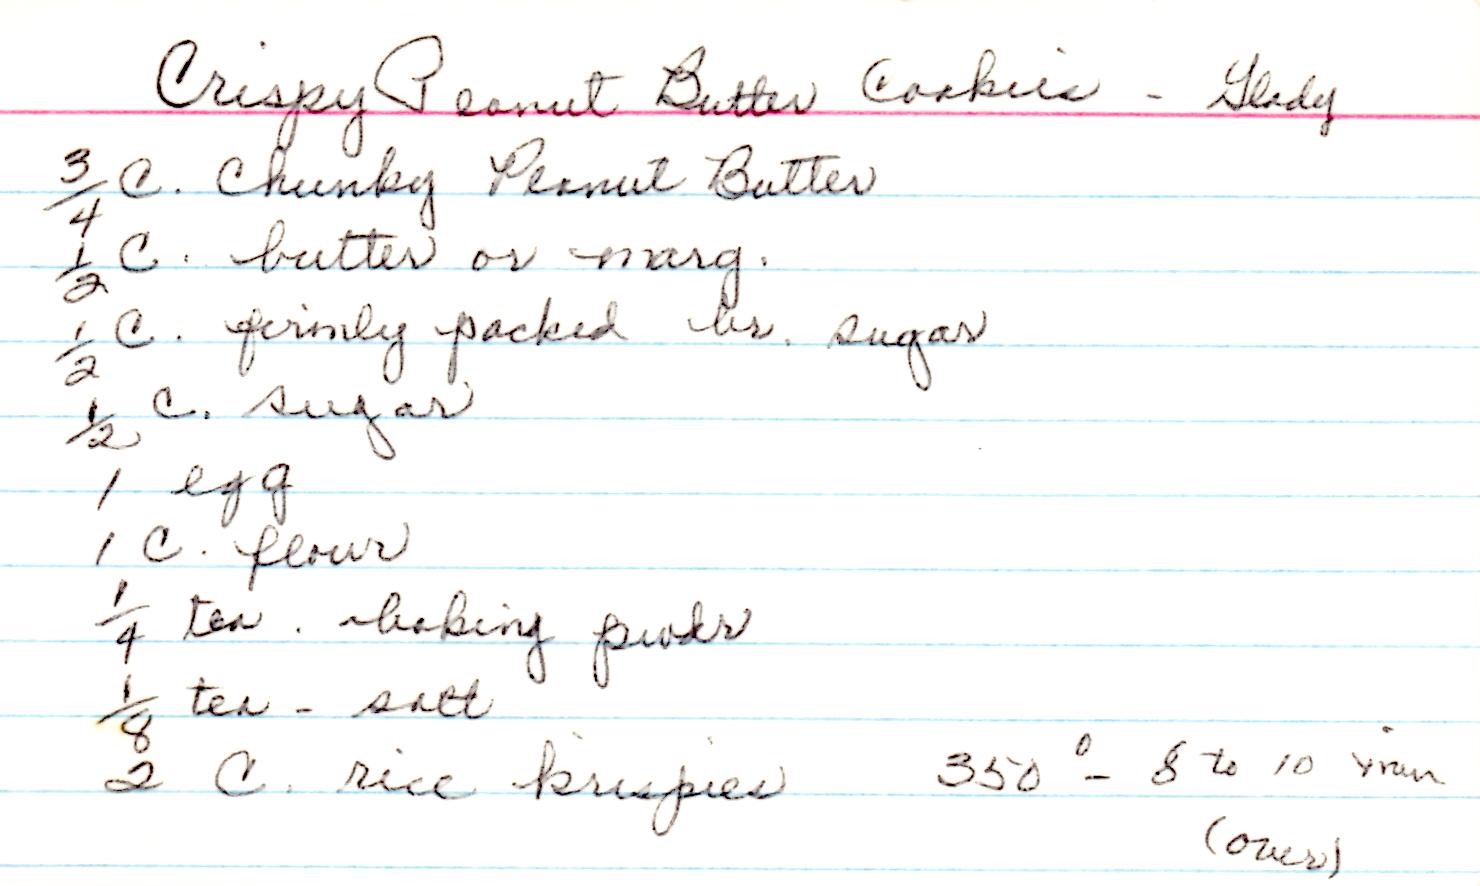 Crispy Peanut Butter Cookies - Glady
3/4 C. Chunky Peanut Butter
1/2 C. butter or marg.
1/2 C. firmly packed br. sugar
1/2 C. sugar
1 egg
1 C. flour
1/4 tea. baking powdr
1/8 tea - salt
2 C. rice krispies 350° - 8 to 10 min
(over)